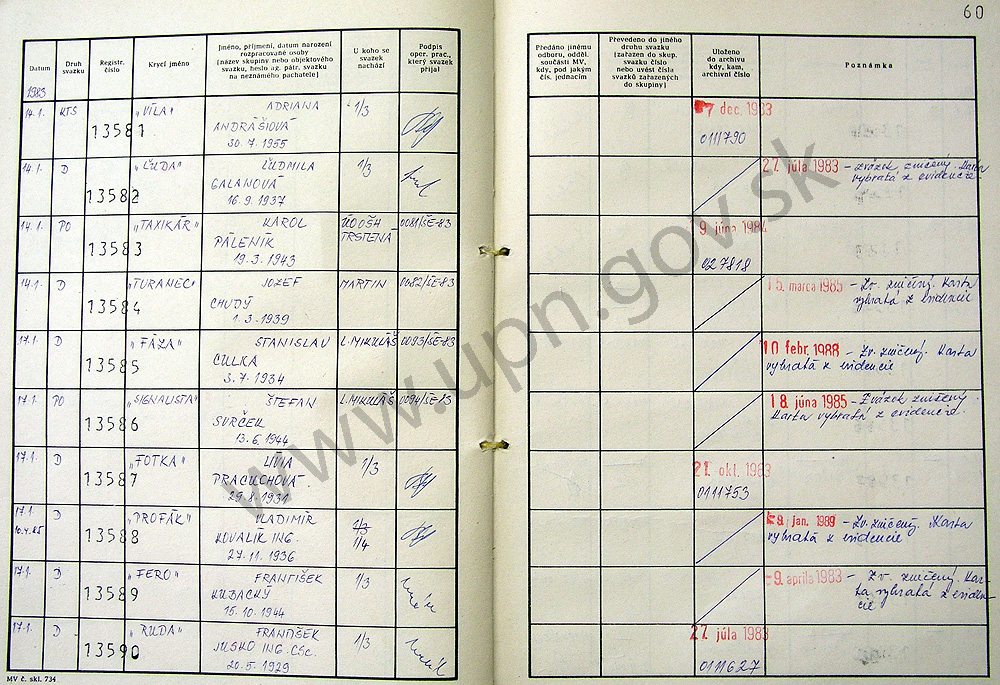 60
Datum
Druh svazku
Registr. číslo
Krycí jméno
Jméno, příjmení, datum narození rozpracované osoby (název skupiny nebo objektového svazku, heslo ag. pátr. svazku na neznámého pachatele)
U koho se svazek nachází
Podpis oper. prac., který svazek přijal
Předáno jinému odboru, odděl. součásti MV, kdy, pod jakým čís. jednacím
Převedeno do jiného druhu svazku (zařazen do skup. svazku číslo nebo uvést čísla svazků zařazených do skupiny)
Uloženo do archivu kdy, kam, archivní číslo
Poznámka
1983
14.1. KTS 13581 „VÍLA" ADRIANA 1/3 7 dec. 1983
ANDRÁŠIOVÁ
30.7.1955 0111790
14.1. D 13582 „ĽUDA" ĽUDMILA 1/3 27. júla 1983 – Zväzok zničený. Karta
GALANOVÁ vybratá z evidencie.
16.9.1937
14.1. PO 13583 „TAXIKÁR" KAROL ÚOOŠH 0081/ŠE-83 9. júna 1984
PÁLENÍK TRSTENÁ
19.3.1943 027818
14.1. D 13584 „TURANEC" JOZEF MARTIN 0082/ŠE-83 15. marca 1985 – Zv. zničený. Karta
CHUDÝ vybratá z evidencie
1.3.1939
17.1. D 13585 „FÁZA" STANISLAV L. MIKULÁŠ 0093/ŠE-83 10 febr. 1988 – Zv. zničený. Karta
CULKA vybratá z evidencie
3.7.1934
17.1. PO 13586 „SIGNALISTA" ŠTEFAN L. MIKULÁŠ 0094/ŠE-83 18. júna 1985 – Zväzok zničený.
SVRČEK Karta vybratá z evidencie.
13.6.1944
17.1. D 13587 „FOTKA" LÍVIA 1/3 21. okt. 1983
PRACUCHOVÁ
29.8.1931 0111753
17.1. D 13588 „PROFÁK" VLADIMÍR 1/3 jan. 1989 – Zv. zničený. Karta
10.4.85 KOVALÍK ING. 1/4 vybratá z evidencie
27.11.1936
17.1. D 13589 „FERO" FRANTIŠEK 1/3 9. apríla 1983 – Zv. zničený. Kar-
KUBACKÝ ta vybratá z eviden-
15.10.1944 cie
17.1. D 13590 „RUDA" FRANTIŠEK 1/3 27 júla 1983
JUSKO ING. CSc.
20.5.1929 0111627
MV č. skl. 734
www.upn.gov.sk